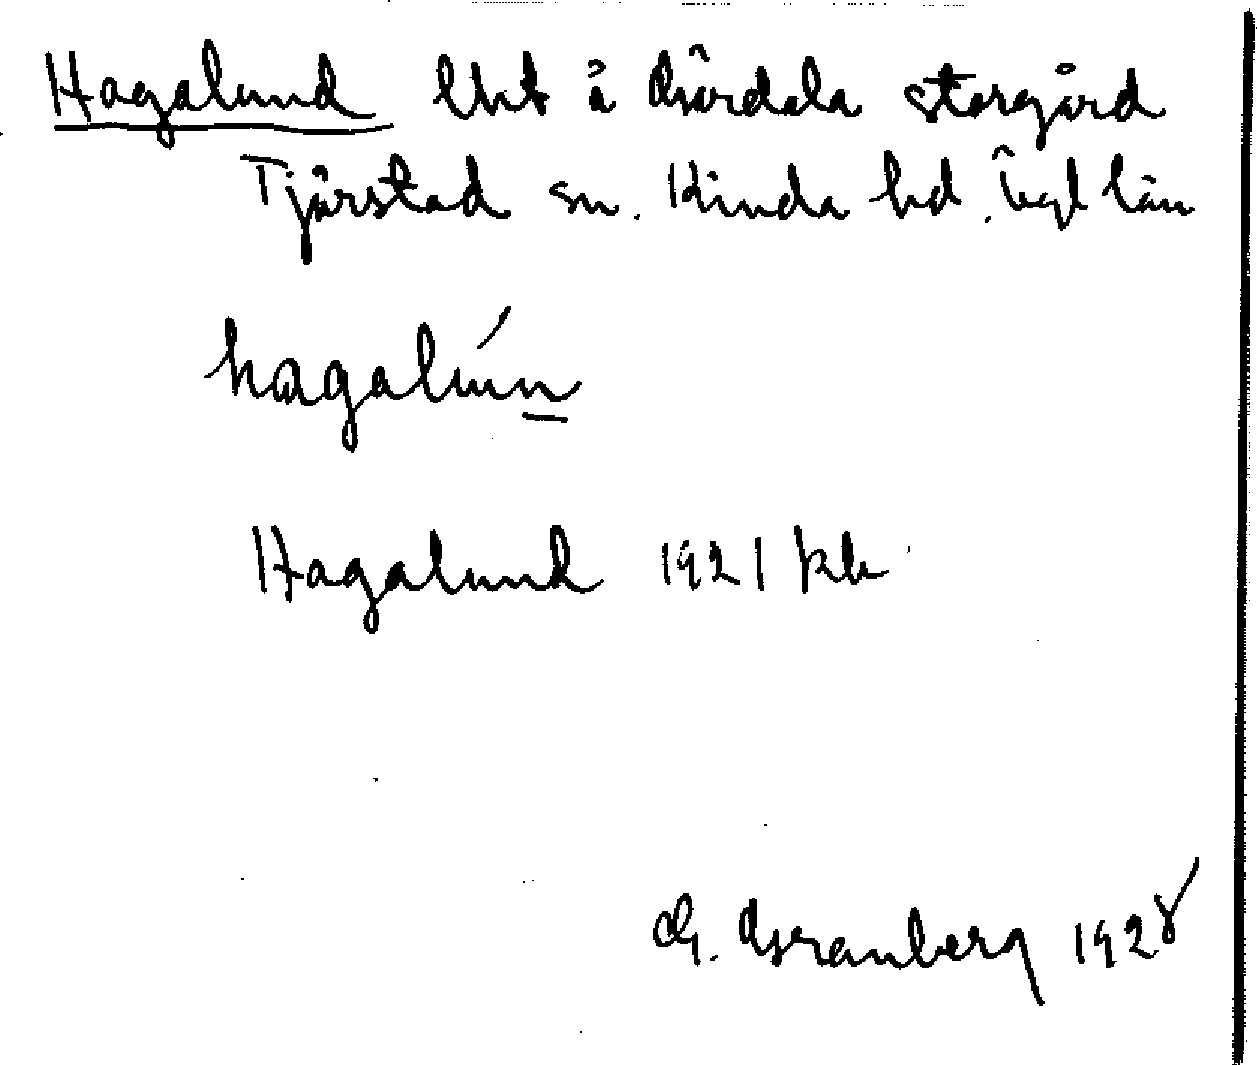 Hagalund lht å Gärdala storgård
Tjärstad sn. Kinda hd. Ögl län
hagalún
Hagalund 1921 kb
G. Granberg 1928